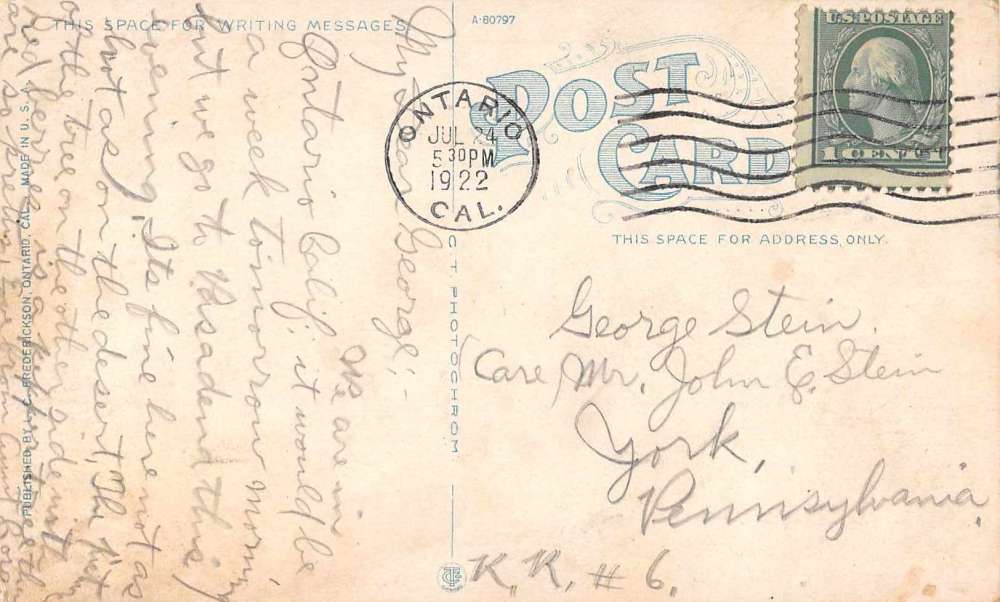 THIS SPACE FOR WRITING MESSAGES
A-80797
POST
CARD
U.S. POSTAGE
1 CENT 1
ONTARIO
JUL 24
5 30 PM
1922
CAL.
THIS SPACE FOR ADDRESS ONLY.
George Stein.
Care Mr. John E. Stein
York,
Pennsylvania
R. R. # 6.
C T PHOTOCHROM
My dear George; -
We are in
Ontario Calif, it would be
a week tomorrow morning
but we go to Pasadena this
evening. Its fine here not as
hot as on the desert, The
on the tree on the other side
here is
are so pretty, from Aunt
PUBLISHED BY FREDERICKSON, ONTARIO, CAL. MADE IN U. S. A.